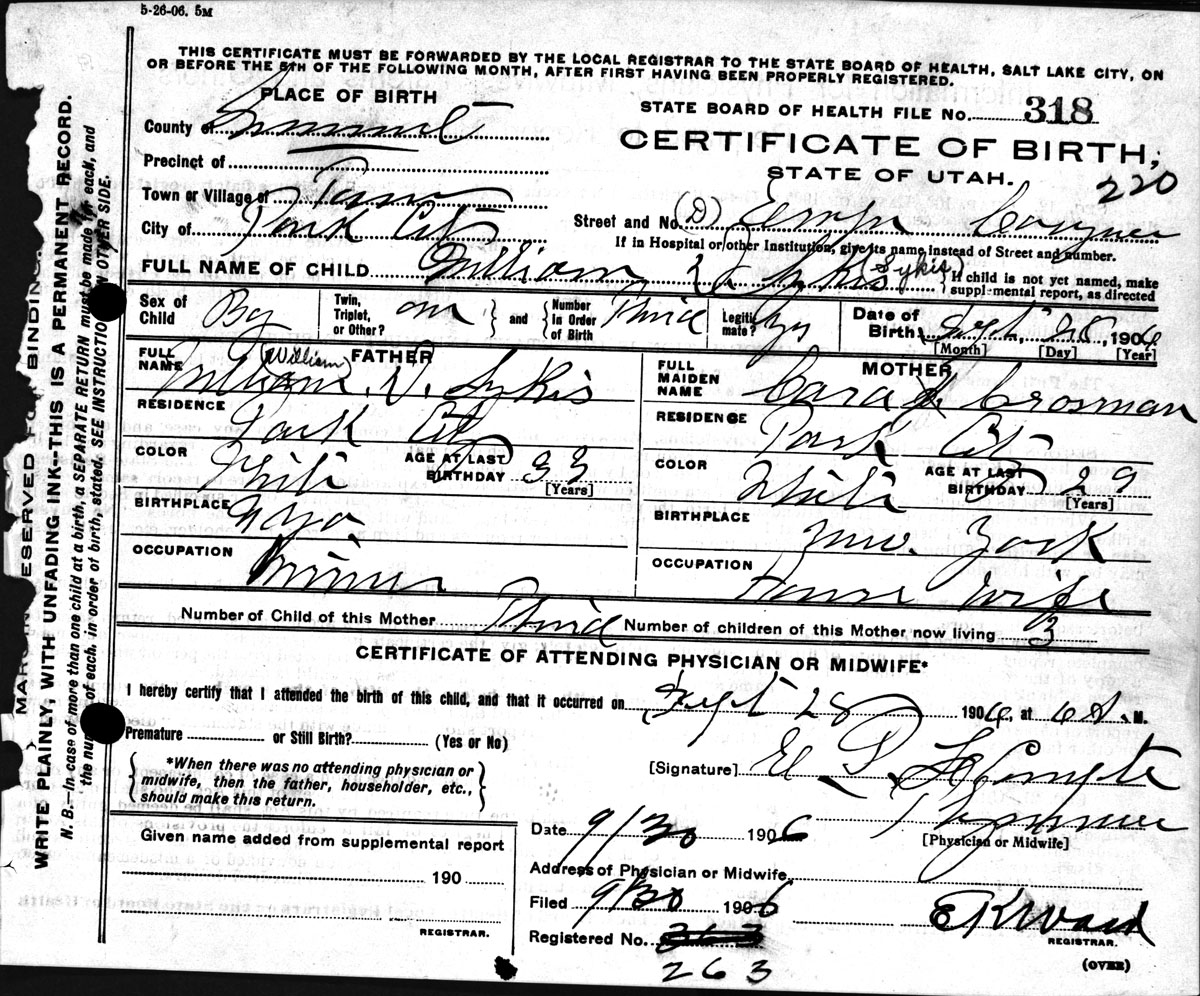 5-26-06. 5M
THIS CERTIFICATE MUST BE FORWARDED BY THE LOCAL REGISTRAR TO THE STATE BOARD OF HEALTH, SALT LAKE CITY, ON
OR BEFORE THE 5TH OF THE FOLLOWING MONTH, AFTER FIRST HAVING BEEN PROPERLY REGISTERED.
PLACE OF BIRTH
STATE BOARD OF HEALTH FILE No. 318
County of Summit
CERTIFICATE OF BIRTH,
Precinct of
STATE OF UTAH.
220
Town or Village of
Street and No. (D)
City of Park City
If in Hospital or other Institution, give its name instead of Street and number.
FULL NAME OF CHILD William Sykis (Sykis)
If child is not yet named, make supplemental report, as directed
Sex of Child Boy
Twin, Triplet, or Other? one and Number in Order of Birth Third
Legitimate? yes
Date of Birth Sept 28, 1906
[Month] [Day] [Year]
FATHER
MOTHER
FULL NAME William V. Sykis
(William)
FULL MAIDEN NAME Cara Crosman
RESIDENCE Park City
RESIDENCE Park City
COLOR White AGE AT LAST BIRTHDAY 33
[Years]
COLOR White AGE AT LAST BIRTHDAY 29
[Years]
BIRTHPLACE
BIRTHPLACE New York
OCCUPATION Miner
OCCUPATION House Wife
Number of Child of this Mother Third Number of children of this Mother now living 3
CERTIFICATE OF ATTENDING PHYSICIAN OR MIDWIFE*
I hereby certify that I attended the birth of this child, and that it occurred on Sept 28 1906, at 6 A. M.
Premature or Still Birth? (Yes or No)
*When there was no attending physician or
midwife, then the father, householder, etc.,
should make this return.
[Signature] E. P. LeCompte
[Physician or Midwife]
Date 9/30 1906
Address of Physician or Midwife
Given name added from supplemental report
190
REGISTRAR.
Filed 9/30 1906 E K Ward
REGISTRAR.
Registered No. 363
263
(OVER)
MARGIN RESERVED FOR BINDING
WRITE PLAINLY, WITH UNFADING INK--THIS IS A PERMANENT RECORD.
N. B.--In case of more than one child at a birth, a SEPARATE RETURN must be made for each, and
the number of each, in order of birth, stated. SEE INSTRUCTION ON OTHER SIDE.